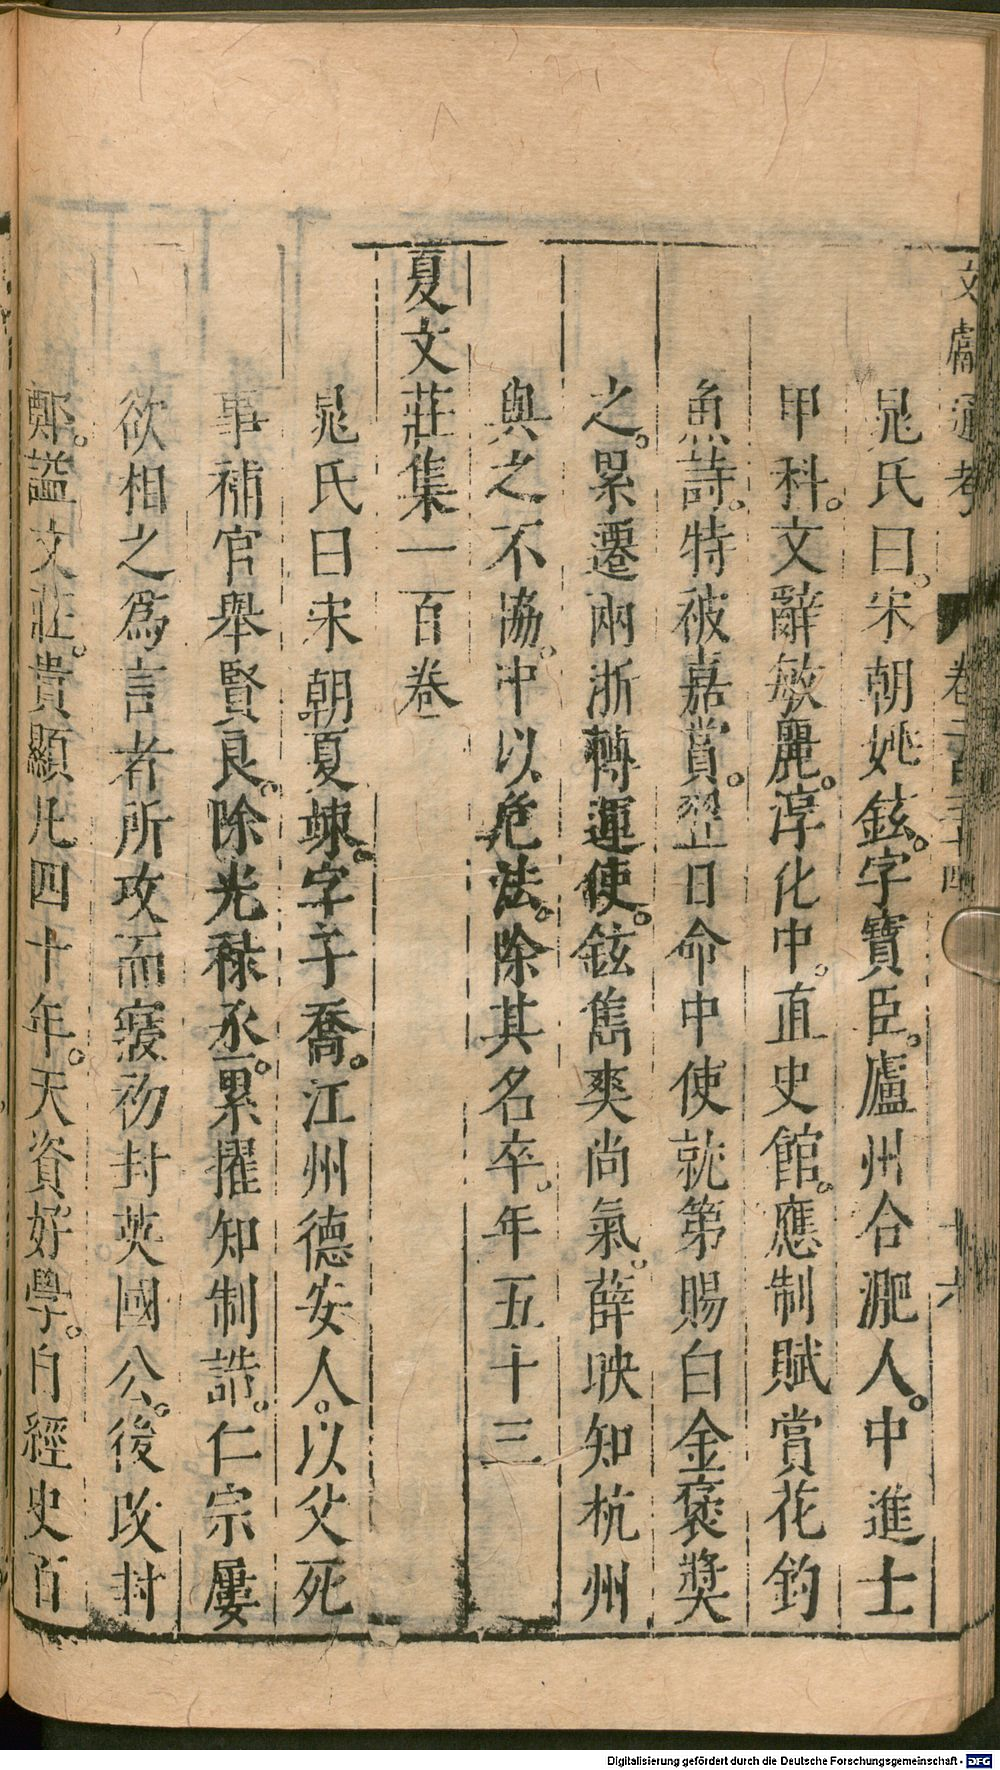 文獻通考 卷二百三十四 十六
晁氏曰。宋朝姚鉉。字寶臣。廬州合淝人。中進士
甲科。文辭敏麗。淳化中。直史館。應制賦賞花釣
魚詩。特被嘉賞。翌日命中使就第賜白金褒獎
之。累遷兩浙轉運使。鉉雋爽尚氣。薛映知杭州
與之不協。中以危法。除其名卒。年五十三
夏文莊集一百卷
晁氏曰宋朝夏竦。字子喬。江州德安人。以父死
事補官舉賢良。除光祿丞。累擢知制誥。仁宗屢
欲相之爲言者所攻而寢初封英國公。後改封
鄭。謚文莊。貴顯凡四十年。天資好學。自經史百
Digitalisierung gefördert durch die Deutsche Forschungsgemeinschaft - DFG